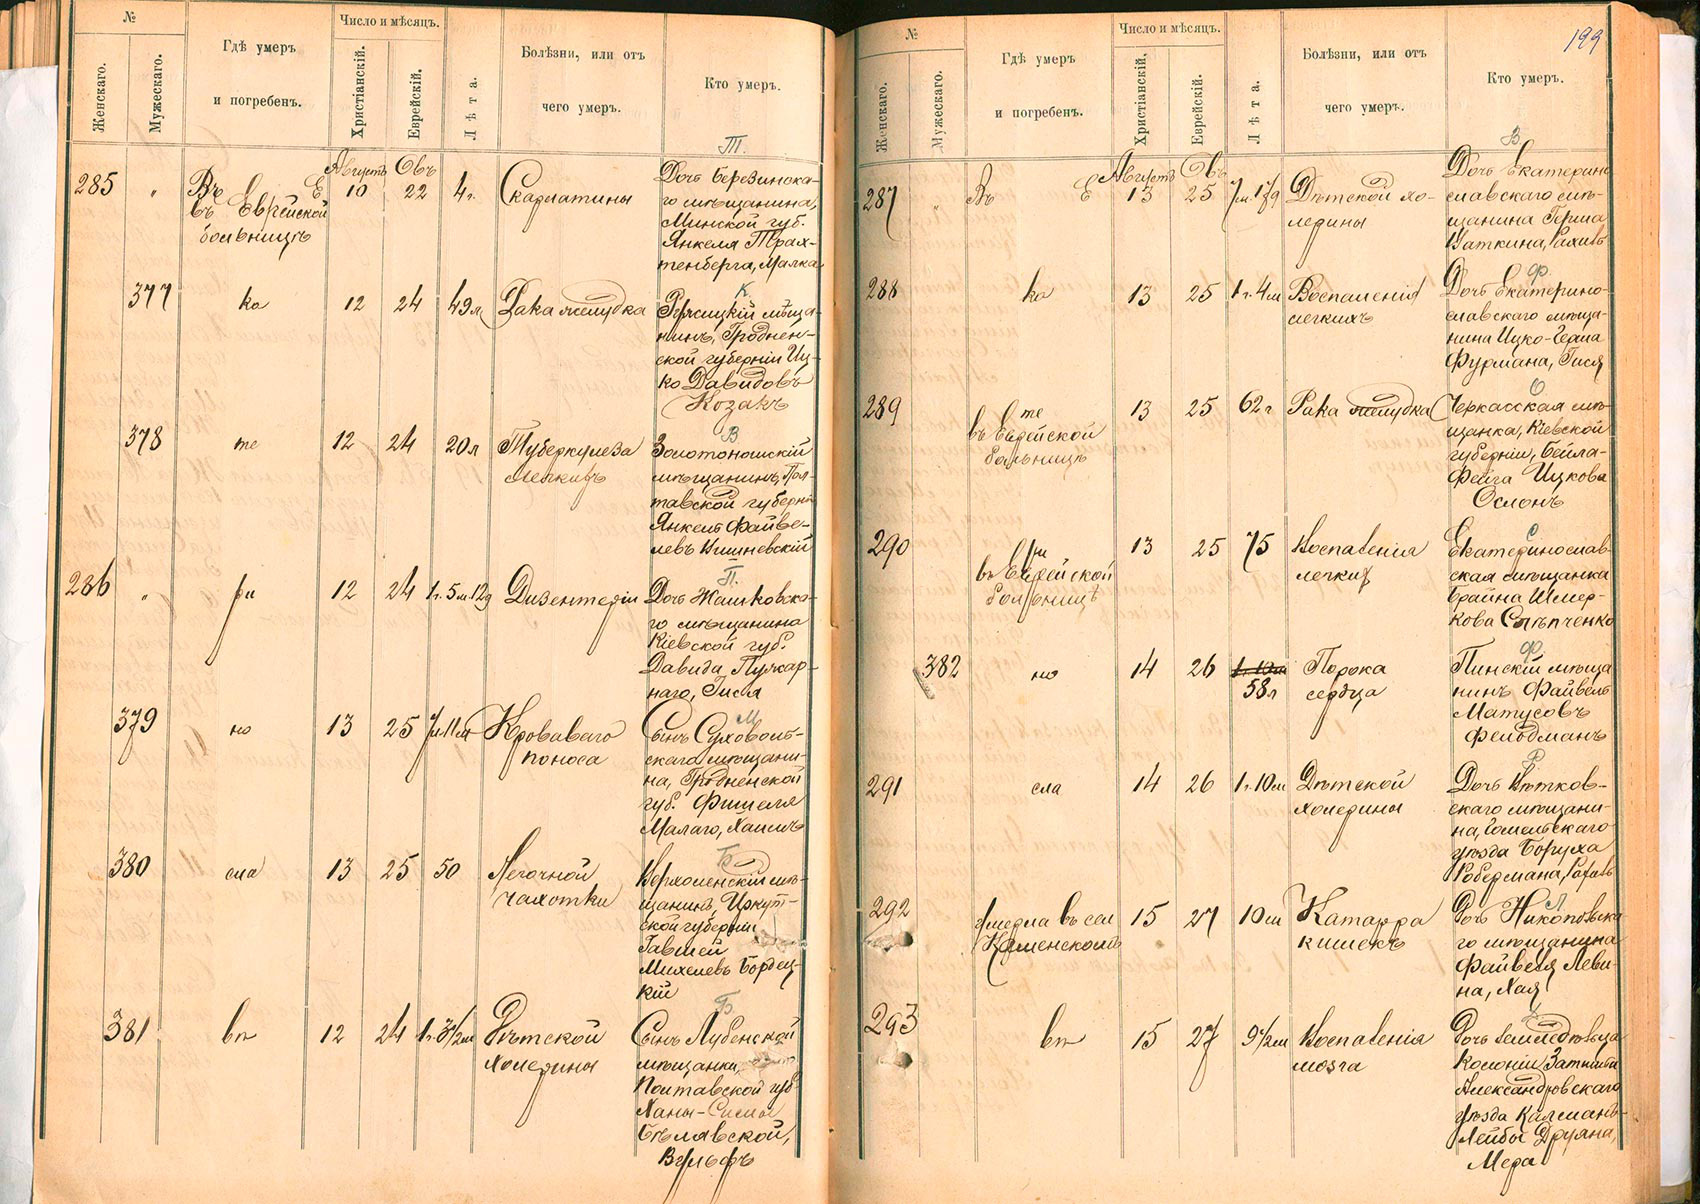 №
Женскаго.
Мужескаго.
Гдѣ умеръ
и погребенъ.
Число и мѣсяцъ.
Христіанскій.
Еврейскій.
Лѣта.
Болѣзни, или отъ
чего умеръ.
Кто умеръ.
Т.
Августъ Овъ
285 „ Въ Е 10 22 4 г. Скарлатины
въ Еврейской
больницѣ
Дочь Березинска-
го мѣщанина,
Минской губ.
Янкеля Трах-
тенберга, Малка
К
377 ка 12 24 49 л Рака желудка
мѣща-
нинъ, Гроднен-
ской губерніи Иц-
ко Давидовъ
Козакъ
В
378 те 12 24 20 л Туберкулеза
легкихъ
Золотоношскій
мѣщанинъ, Пол-
тавской губерніи
Янкель Файве-
левъ Вишневскій
П.
286 „ ри 12 24 1 г. 5 м. 12 д Дизентеріи
Дочь Жашковска-
го мѣщанина
Кіевской губ.
Давида Пушкар-
наго, Гися
М
379 но 13 25 11 м Кроваваго
поноса
Сынъ Суховоль-
скаго мѣщани-
на, Гродненской
губ. Фишеля
Малаго, Хаимъ
Б
380 сла 13 25 50 Легочной
чахотки
Верхоленскій мѣ-
щанинъ, Иркут-
ской губерніи
Гавшей
Михелевъ Бордец-
кій
Б
381 въ 12 24 1 г. 3 1/2 м Дѣтской
холерины
Сынъ Лубенской
мѣщанки,
Полтавской губ.
Ханы-Симы
Бѣлявской,
Вульфъ
199
№
Женскаго.
Мужескаго.
Гдѣ умеръ
и погребенъ.
Число и мѣсяцъ.
Христіанскій.
Еврейскій.
Лѣта.
Болѣзни, или отъ
чего умеръ.
Кто умеръ.
В
Августъ Овъ
287 „ Въ Е 13 25 Дѣтской хо-
лерины
Дочь Екатерино
славскаго мѣ-
щанина Герша
Ваткина, Рахиль
Ф.
288 ка 13 25 1 г. 4 м Воспаленія
легкихъ
Дочь Екатерино-
славскаго мѣща-
нина Ицко-Герша
Фурмана, Гися
О
289 те 13 25 62 г Рака желудка
въ Еврейской
больницѣ
Черкасская мѣ-
щанка, Кіевской
губерніи, Бейла-
Фейга Ицкова
Ослонъ
С
290 ри 13 25 75 Воспаленія
легкихъ
въ Еврейской
больницѣ
Екатеринослав-
ская мѣщанка
Брайна Шмер-
кова Слѣпченко
Ф.
382 но 14 26 1 г. 10 м Порока
58 л сердца
Пинскій мѣща
нинъ Файвель
Матусовъ
Фельдманъ
Р
291 сла 14 26 1 г. 10 м Дѣтской
холерины
Дочь Вѣтков-
скаго мѣщани-
на, Гомельскаго
уѣзда Боруха
Робермана,
Л
292 умерла въ сел 15 27 10 м Катарра
Каменскомъ кишекъ
Дочь Никопольска-
го мѣщанина
Файвеля Леви-
на, Хая
293 въ 15 27 9 1/2 м Воспаленія
мозга
Дочь земледѣльца
Колоніи Затишья
Александровскаго
уѣзда Калмана-
Лейбы Друяна,
Мера